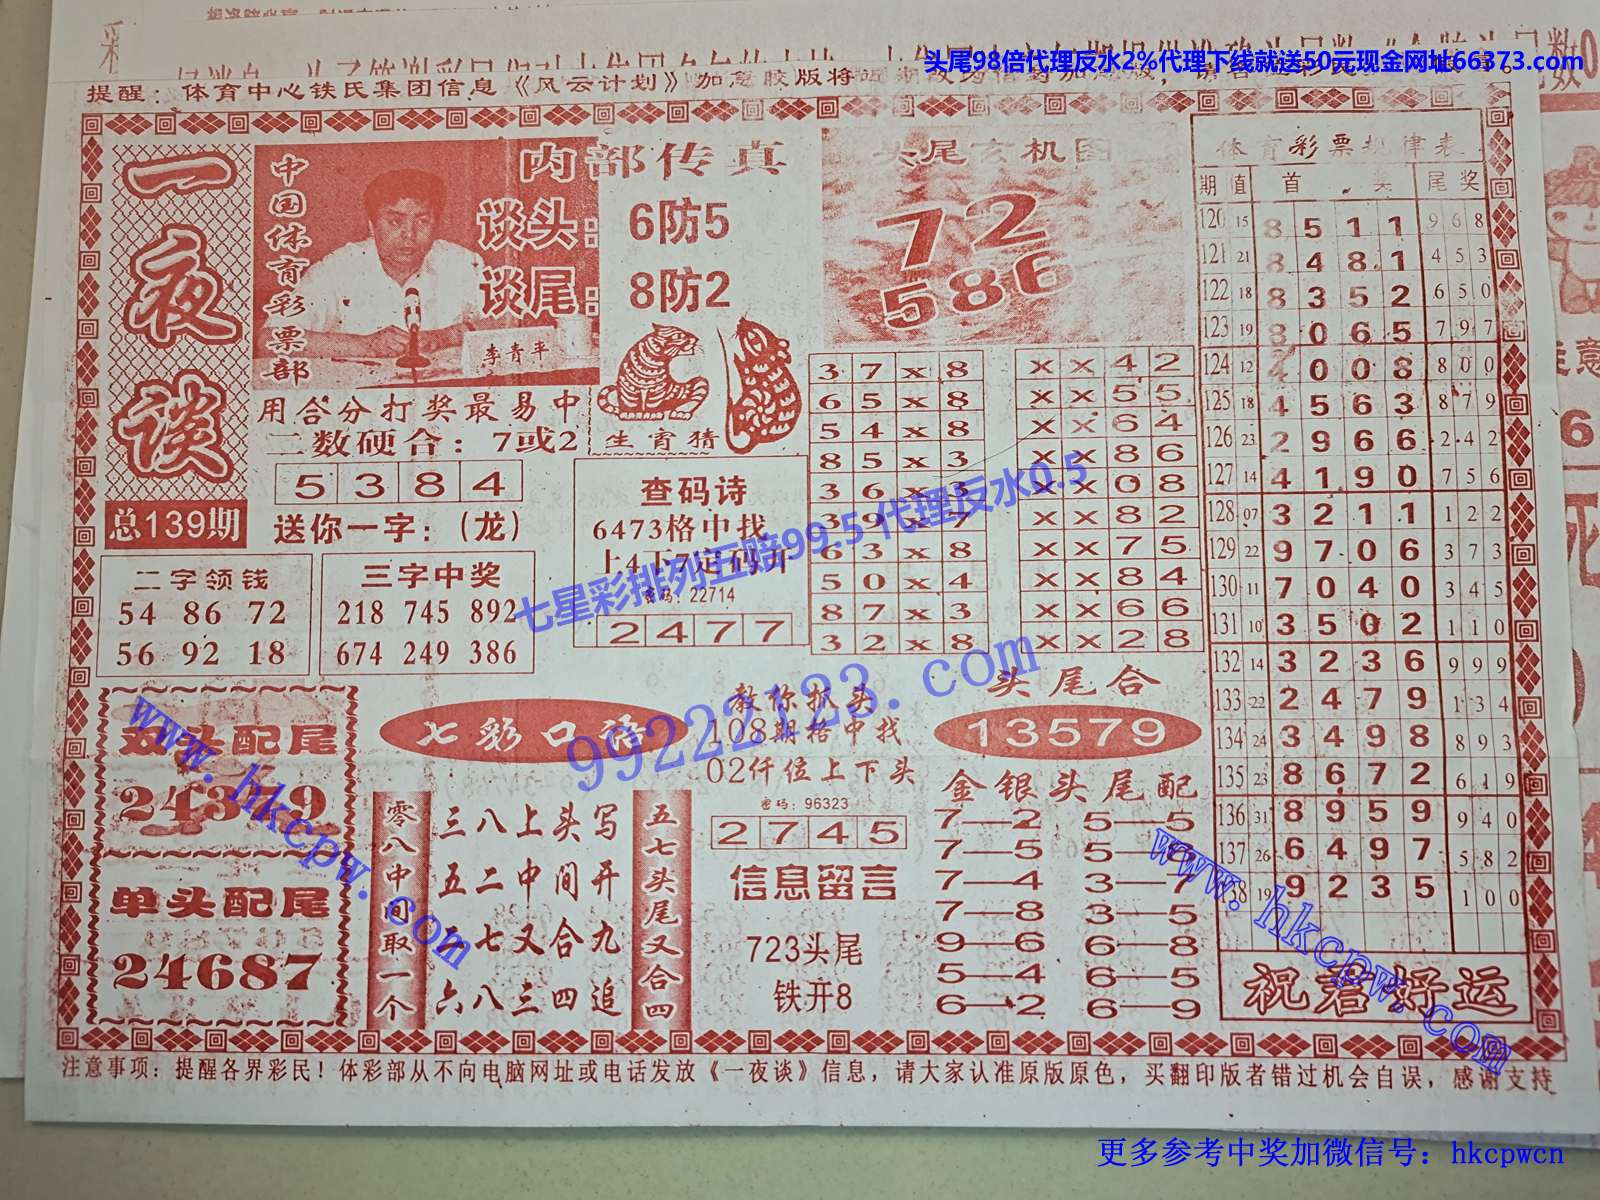 头尾98倍代理反水2%代理下线就送50元现金网址66373.com
提醒：体育中心铁民集团信息《风云计划》加急胶版将
一夜谈
总139期
中国体育彩票部
李青平
内部传真
谈头：6防5
谈尾：8防2
头尾玄机图
72
586
用合分打奖最易中
二数硬合：7或2
5 3 8 4
送你一字：（龙）
生宵猜
查码诗
6473格中找
上4下7定码开
密码：22714
2 4 7 7
二字领钱
54 86 72
56 92 18
三字中奖
218 745 892
674 249 386
3 7 x 8
6 5 x 8
5 4 x 8
8 5 x 3
3 6 x 3
3 9 x 7
6 3 x 8
5 0 x 4
8 7 x 3
3 2 x 8
x x 4 2
x x 5 5
x x 6 4
x x 8 6
x x 0 8
x x 8 2
x x 7 5
x x 8 4
x x 6 6
x x 2 8
体育彩票规律表
期 值 首 奖 尾奖
120 15 8 5 1 1 9 6 8
121 21 8 4 8 1 4 5 3
122 18 8 3 5 2 6 5 0
123 19 8 0 6 5 7 9 7
124 12 4 0 0 8 8 0 0
125 18 4 5 6 3 8 7 9
126 23 2 9 6 6 2 4 2
127 14 4 1 9 0 7 5 6
128 07 3 2 1 1 1 2 2
129 22 9 7 0 6 3 7 3
130 11 7 0 4 0 3 4 5
131 10 3 5 0 2 1 1 0
132 14 3 2 3 6 9 9 9
133 22 2 4 7 9 1 3 4
134 24 3 4 9 8 8 9 3
135 23 8 6 7 2 6 1 9
136 31 8 9 5 9 9 4 0
137 26 6 4 9 7 5 8 2
19 9 2 3 5 1 0 0
祝君好运
双头配尾
单头配尾
24687
七彩口语
零八中间取一个
三八上头写
五二中间开
七又合九
六八三四追
五七头尾又合四
教你抓头
108期格中找
02仟位上下头
密码：96323
2 7 4 5
信息留言
723头尾
铁开8
头尾合
13579
金银头尾配
7—2 5—5
7—5
7—4 3—7
7—8 3—5
9—6 6—8
5—4 6—5
6—2 6—9
注意事项：提醒各界彩民！体彩部从不向电脑网址或电话发放《一夜谈》信息，请大家认准原版原色，买翻印版者错过机会自误，感谢支持
七星彩排列五赔99.5 代理反水0.5
99222123.com
www.hkcpw.com
www.hkcpw.com
更多参考中奖加微信号：hkcpwcn